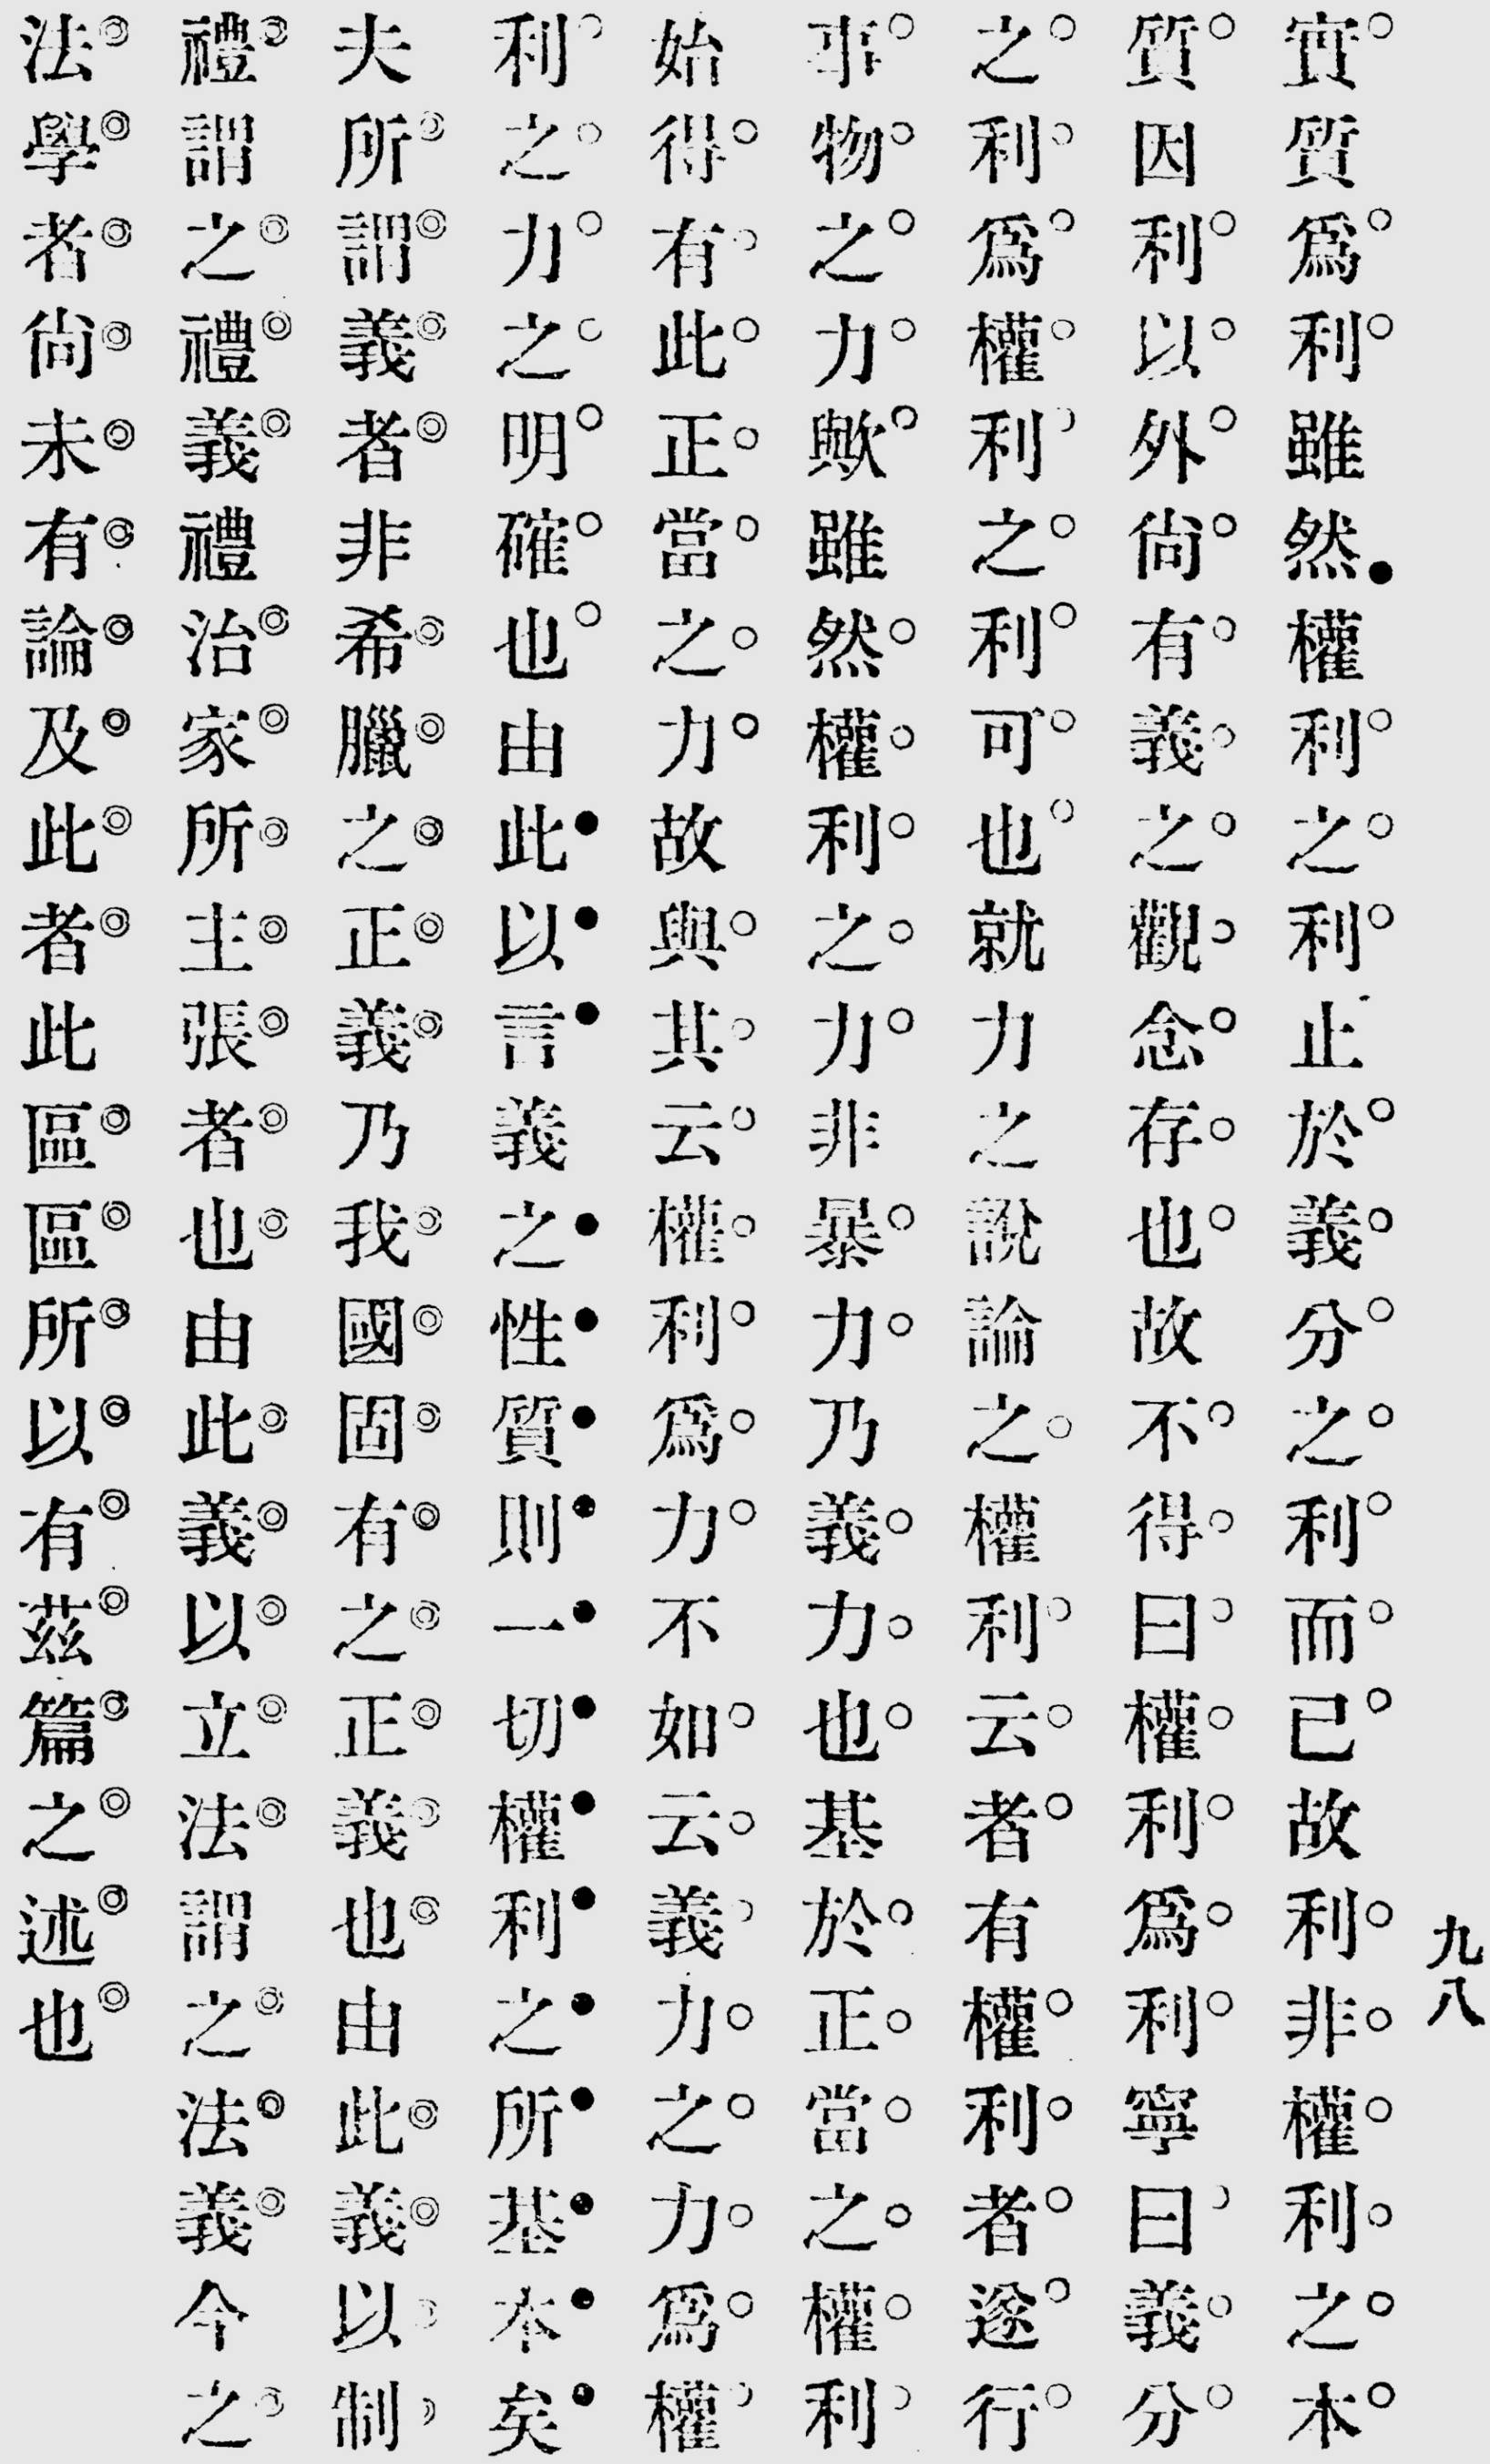 九八
實質爲利雖然權利之利止於義分之利而已故利非權利之本
質因利以外尙有義之觀念存也故不得曰權利爲利寧曰義分
之利爲權利之利可也就力之說論之權利云者有權利者遂行
事物之力歟雖然權利之力非暴力乃義力也基於正當之權利
始得有此正當之力故與其云權利爲力不如云義力之力爲權
利之力之明確也由此以言義之性質則一切權利之所基本矣
夫所謂義者非希臘之正義乃我國固有之正義也由此義以制
禮謂之禮義禮治家所主張者也由此義以立法謂之法義今之
法學者尙未有論及此者此區區所以有茲篇之述也